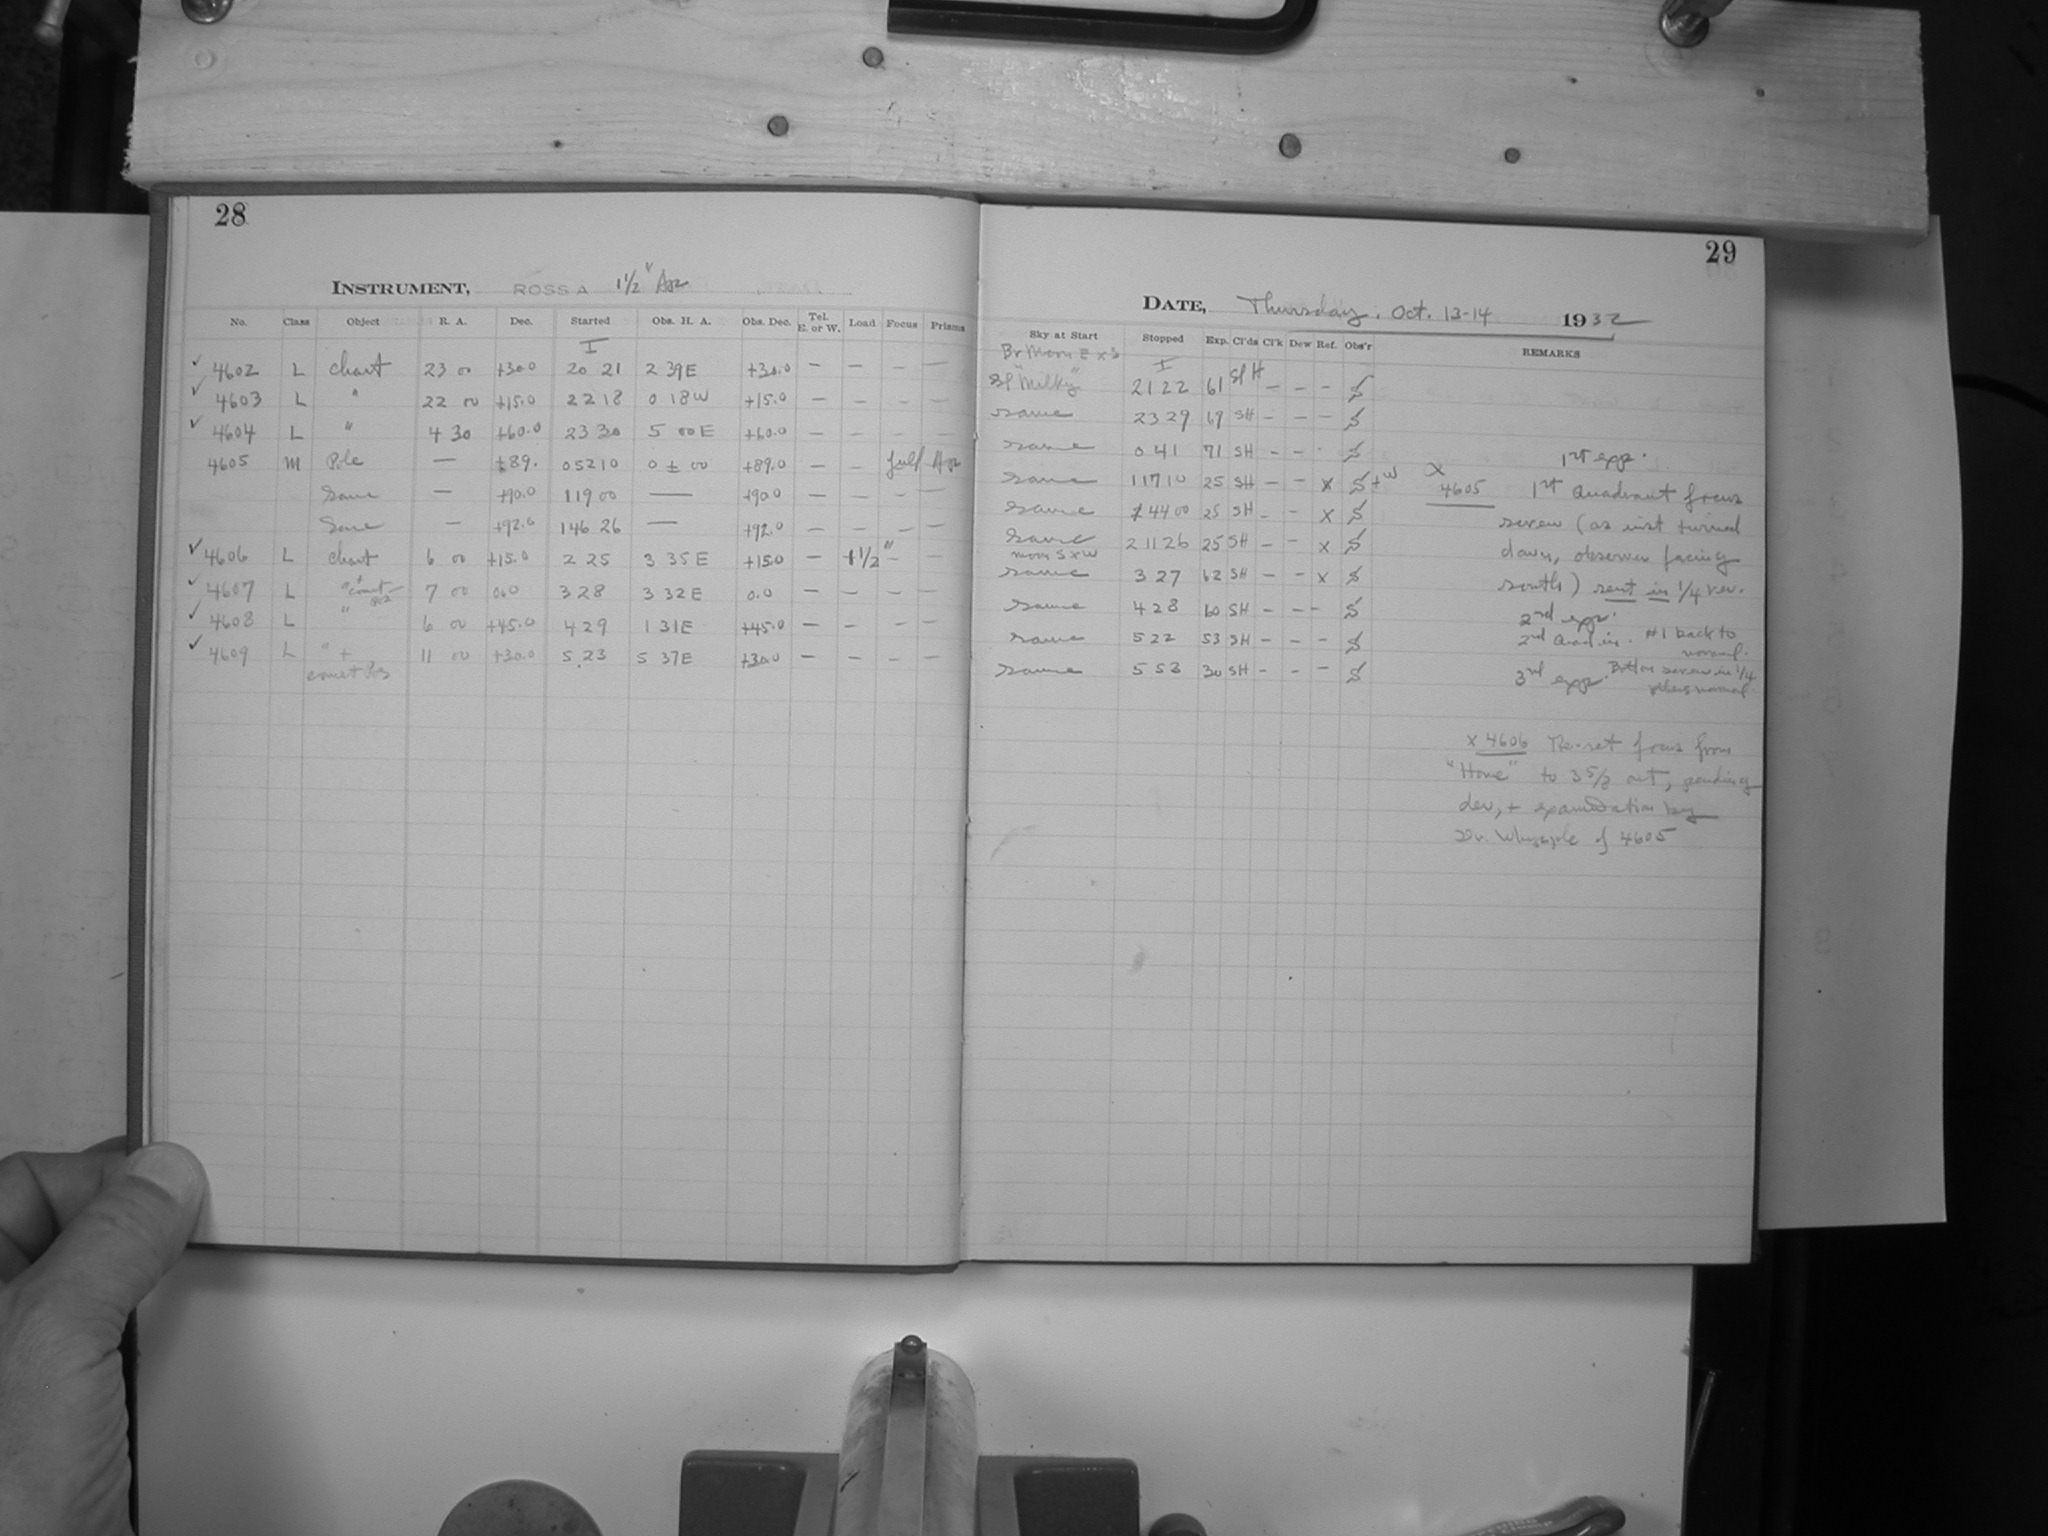 28
INSTRUMENT, ROSS A 1 1/2" Apr
No. Class Object R. A. Dec. Started Obs. H. A. Obs. Dec. Tel. E. or W. Load Focus Prisms
I
✓ 4602 L Chart 23 00 +30.0 20 21 2 39E +30.0 — — — —
✓ 4603 L " 22 00 +15.0 22 18 0 18W +15.0 — — — —
✓ 4604 L " 4 30 +60.0 23 30 5 00E +60.0 — — — —
4605 M Pole — +89. 0 52 10 0 ± 00 +89.0 — — full Apr
Same — +90.0 1 19 00 — +90.0 — — — —
Same — +92.0 1 46 26 — +92.0 — — — —
✓ 4606 L Chart 6 00 +15.0 2 25 3 35E +15.0 — +1/2" — —
✓ 4607 L " + comet pos 7 00 0.0 3 28 3 32E 0.0 — — — —
✓ 4608 L " 6 00 +45.0 4 29 1 31E +45.0 — — — —
✓ 4609 L " + 11 00 +30.0 5 23 5 37E +30.0 — — — —
comet Pos
29
DATE, Thursday, Oct. 13-14 1932
Sky at Start Stopped Exp. Cl'ds Cl'k Dew Ref. Obs'r REMARKS
Br Moon E x S I
Sl "Milky" 21 22 61 Sl H — — — S
same 23 29 69 SH — — — S
same 0 41 71 SH — — S
same 1 17 10 25 SH — — x S + W
same 1 44 00 25 SH — — x S
same 2 11 26 25 SH — — x S
moon S x W
same 3 27 62 SH — — x S
same 4 28 60 SH — — — S
same 5 22 53 SH — — — S
same 5 53 30 SH — — — S
1st exp.
x 4605 1st Quadrant focus
screw (as inst turned
down, observer facing
south) sent in 1/4 rev.
2nd exp.
2nd Quad in. #1 back to
normal.
3rd exp. Bottom screw in 1/4
others normal.
x 4606 Re-set focus from
"Home" to 3 5/8 out, pending
dev, + examination by
Dr. Whipple of 4605